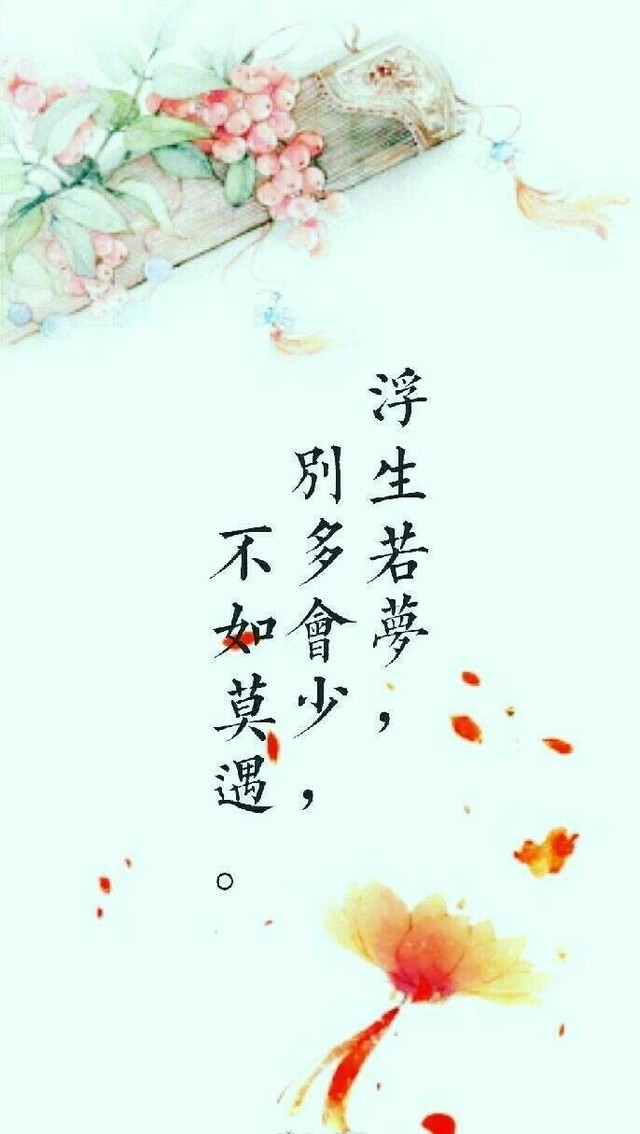 浮生若夢，
別多會少，
不如莫遇。